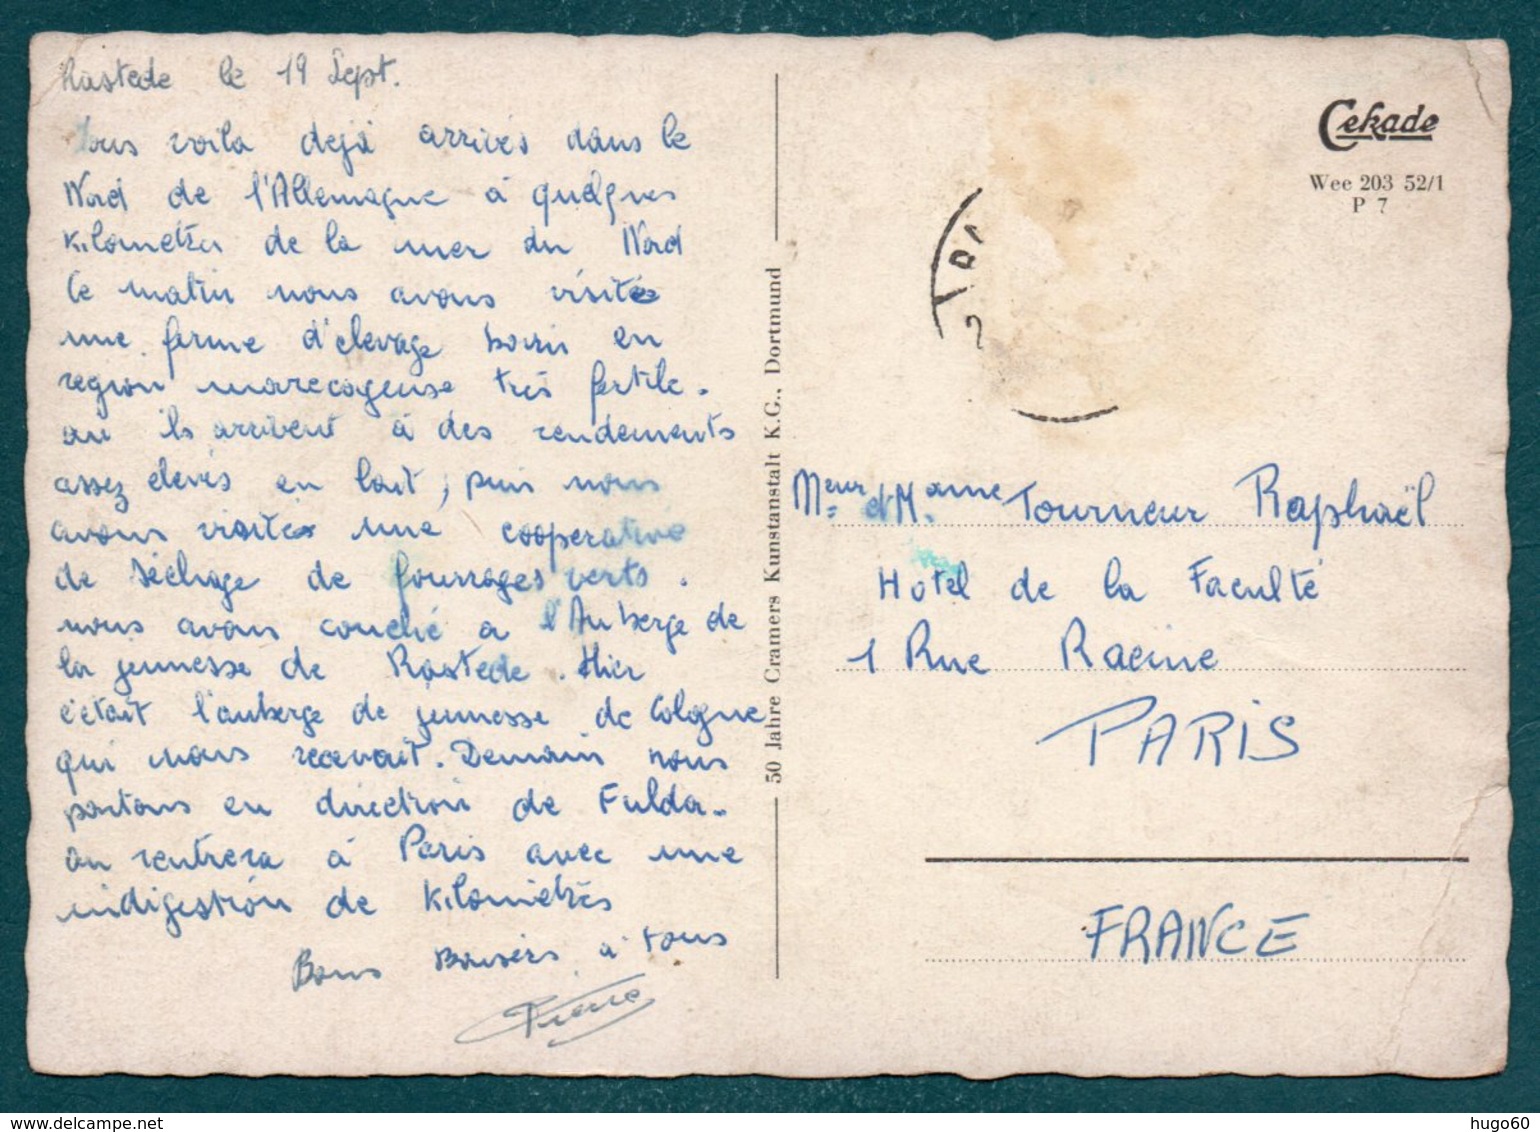 Rastede le 19 Sept.
Nous voila dejà arrivés dans le
Nord de l'Allemagne à quelques
Kilomètres de la mer du Nord
Ce matin nous avons visitée
une ferme d'élevage bovin en
region marecageuse très fertile.
ou ils arrivent à des rendements
assez élevés en lait, puis nous
avons visités une cooperative
de séchage de fourrages verts.
nous avons couché a l'Auberge de
la jeunesse de Rastede. Hier
c'était l'auberge de jeunesse de Cologne
qui nous recevait. Demain nous
partons en direction de Fulda.
on rentrera à Paris avec une
indigestion de Kilomètres
Bons Baisers à tous
Pierre
50 Jahre Cramers Kunstanstalt K.G., Dortmund
Cekade
Wee 203 52/1
P 7
Meur et Mame Tourneur Raphaël
Hotel de la Faculté
1 Rue Racine
PARIS
FRANCE
www.delcampe.net
hugo60